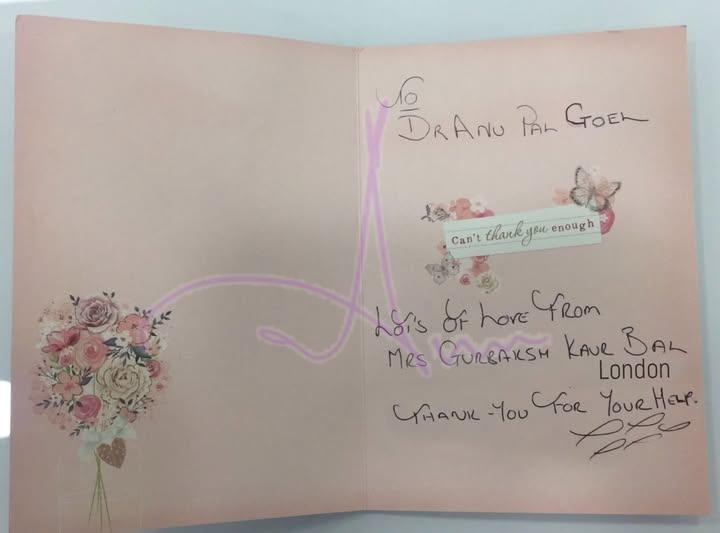 To
Dr Anu Pal Goel
Can't thank you enough
Lot's Of Love From
Mrs Gurbaksh Kaur Bal
London
Thank-You For Your Help.